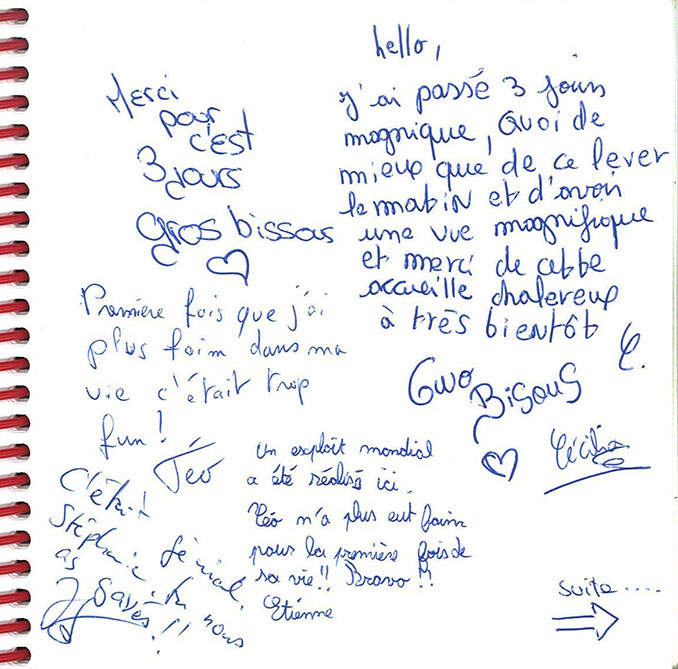 Merci
pour
c'est
3 jours
gros bissos
hello,
j'ai passé 3 jours
magnique, Quoi de
mieux que de ce lever
le matin et d'avoir
une vue magnifique
et merci de cette
accueille chalereux
à très bientôt
C.
Gwo Bisous
Cécilia
Première fois que j'ai
plus faim dans ma
vie c'était trop
fun !
Téo
Un exploit mondial
a été réalisé ici.
Téo n'a plus eut faim
pour la première fois de
sa vie !! Bravo !!
Etienne
C'était
génial,
Stéphanie tu nous
as gavés !!
suite ....